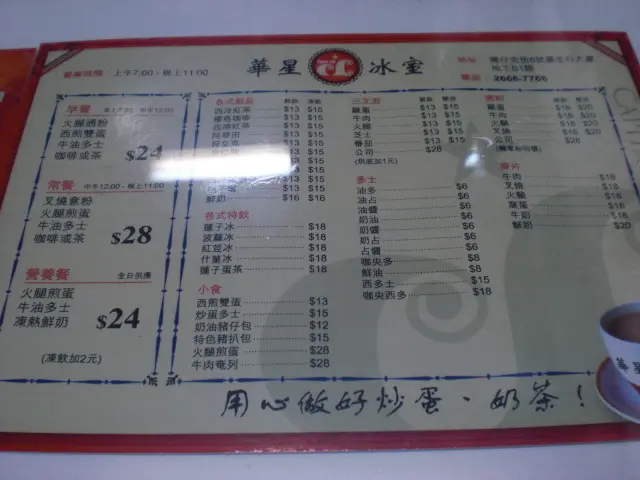 營業時間 上午7:00 - 晚上11:00
華星 冰室
地址: 灣仔克街6號廣生行大廈
地下B1舖
電話: 2666-7766
早餐
火腿通粉
西煎雙蛋
牛油多士
咖啡或茶 $24
常餐 中午12:00 - 晚上11:00
叉燒意粉
火腿煎蛋
牛油多士
咖啡或茶 $28
營養餐 全日供應
火腿煎蛋
牛油多士
凍熱鮮奶 $24
(凍飲加2元)
各式飲品
西冷紅茶 $13 $15
$13 $15
$13 $15
$13 $15
鮮奶 $16 $16
各式特飲
蓮子冰 $18
菠蘿冰 $18
紅荳冰 $18
什菓冰 $18
蓮子蛋茶 $18
小食
西煎雙蛋 $13
炒蛋多士 $15
奶油豬仔包 $12
特色豬扒包 $15
火腿煎蛋 $28
牛肉奄列 $28
三文治
雞蛋 $13 $15
牛肉 $13 $15
火腿 $13 $15
芝士 $13 $15
番茄 $13 $15
公司 $28
(烘底加1元)
多士
油多 $6
油占 $6
油醬 $6
奶油 $6
奶醬 $6
奶占 $6
占醬 $6
咖央多 $8
鮮油 $8
西多士 $15
咖央西多 $18
$18 $20
牛肉 $18 $20
火腿 $18 $20
叉燒 $18 $20
公司 $28
麥片
牛肉 $18
叉燒 $18
火腿 $18
$18
牛奶 $18
鮮奶 $20
用心做好炒蛋、奶茶!
華星